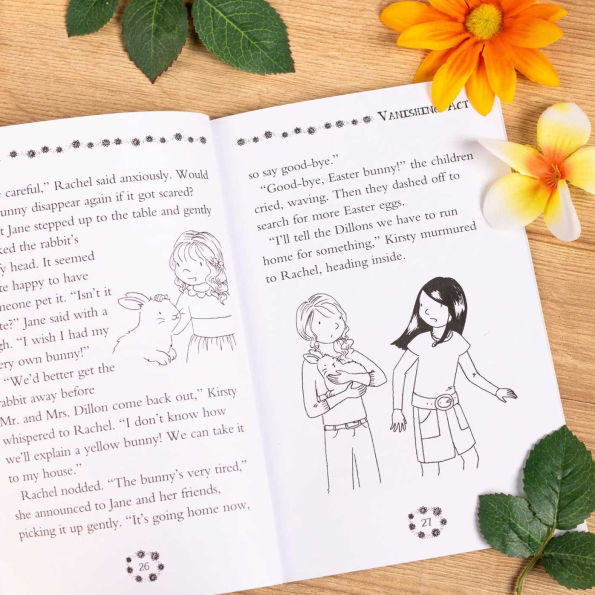 careful,” Rachel said anxiously. Would
unny disappear again if it got scared?
t Jane stepped up to the table and gently
ked the rabbit’s
y head. It seemed
te happy to have
meone pet it. “Isn’t it
te?” Jane said with a
gh. “I wish I had my
ery own bunny!”
“We’d better get the
rabbit away before
Mr. and Mrs. Dillon come back out,” Kirsty
whispered to Rachel. “I don’t know how
we’ll explain a yellow bunny! We can take it
to my house.”
Rachel nodded. “The bunny’s very tired,”
she announced to Jane and her friends,
picking it up gently. “It’s going home now,
26
VANISHING ACT
so say good-bye.”
“Good-bye, Easter bunny!” the children
cried, waving. Then they dashed off to
search for more Easter eggs.
“I’ll tell the Dillons we have to run
home for something,” Kirsty murmured
to Rachel, heading inside.
27